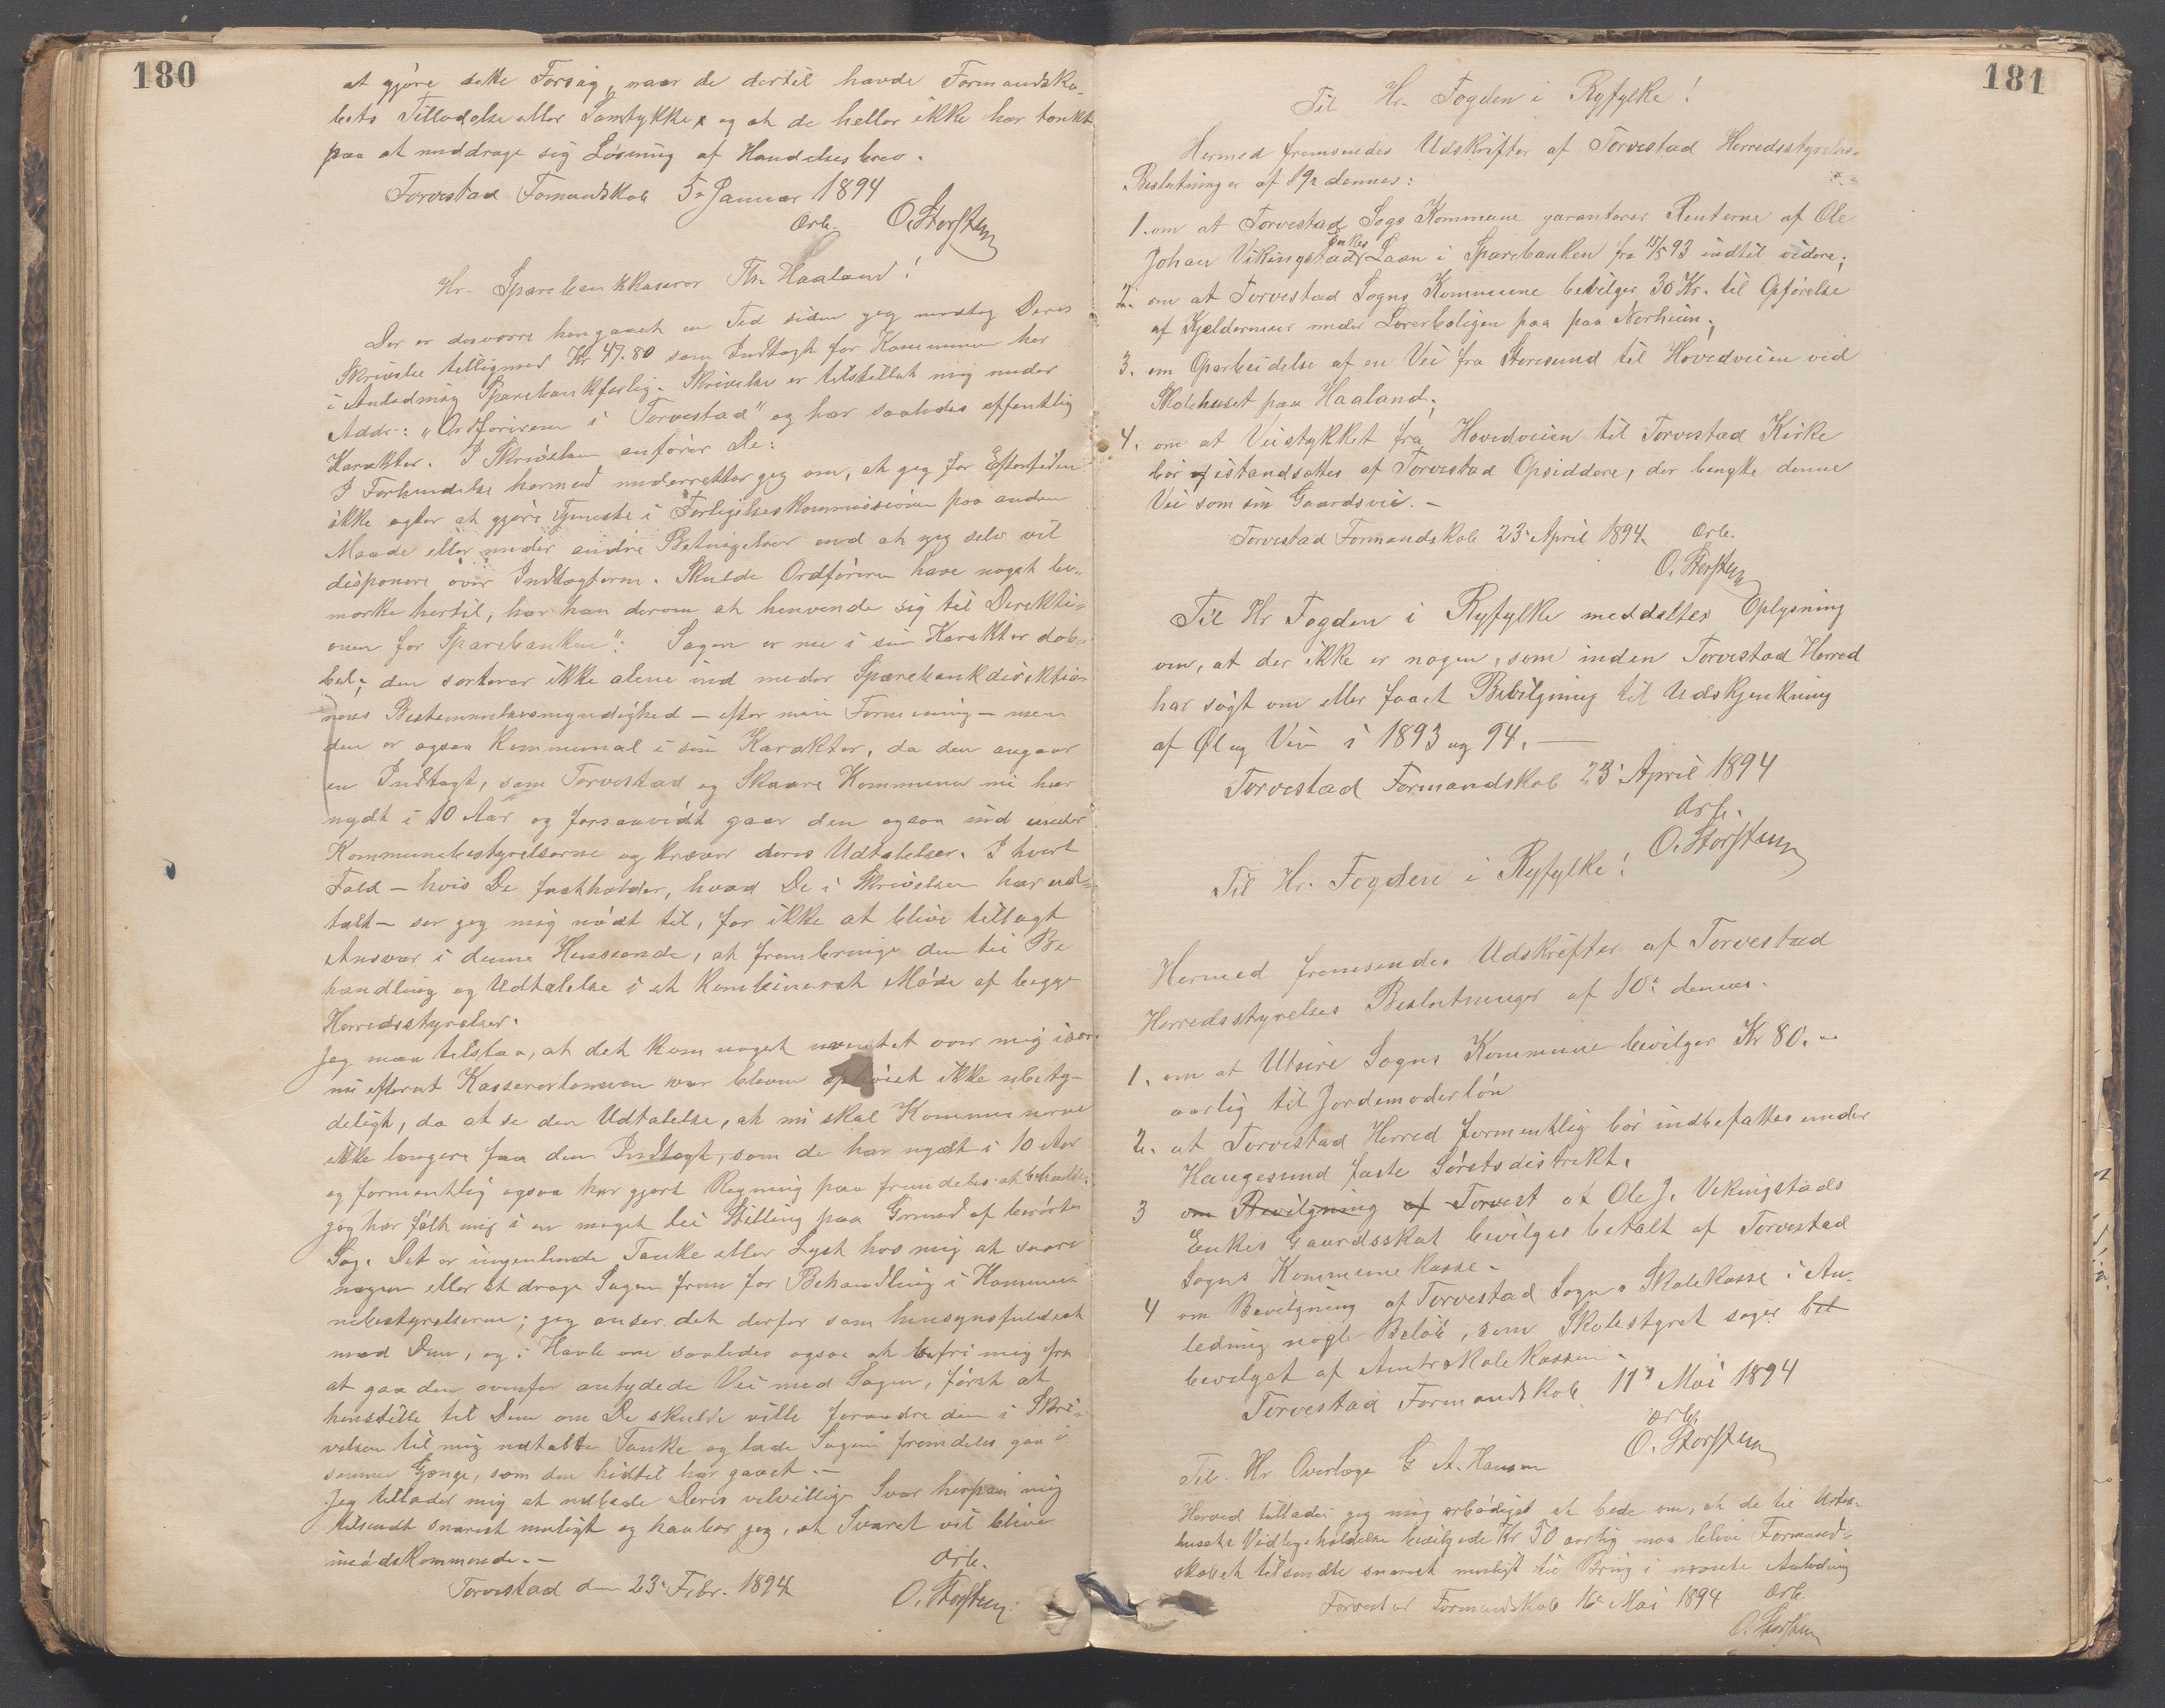 180
at gjöre dette Forsög, naar de dertil havde Formandska-
bets Tilladelse eller Samtykke og at de heller ikke har tænkt
paa at unddrage sig Lösning af Handelsbrev.
Torvestad Formandskab 5. Januar 1894
Ærb. O. Storsten
Hr. Sparebankkaserer Th. Haaland!
Der er desværre hengaaet en Tid siden jeg modtog Deres
Skrivelse tilligemed Kr 49.80 som Indtægt for Kommunen her
i Anledning Sparebankforlig. Skrivelse er tilstillet mig under
Addr: "Ordföreren i Torvestad" og har saaledes offentlig
Karakter. I Skrivelsen anförer De:
I Forbindelse hermed underretter jeg om, at jeg for Eftertiden
ikke agter at gjöre Tjeneste i Forligelseskommissionen paa anden
Maade eller under andre Betingelser end at jeg selv vil
disponere over Indtægterne. Skulde Ordföreren have noget be-
mærke hertil, har han derom at henvende sig til Direkti-
onen for Sparebanken". Sagen er nu i sin Karakter dob-
bel; den sorterer ikke alene ind under Sparebankdirektio-
nens Bestemmelsesmyndighed - efter min Formening - men
den er ogsaa Kommunal i sin Karakter, da den angaar
en Indtægt, som Torvestad og Skaare Kommuner nu har
nydt i 10 Aar og forsaavidt gaar den ogsaa ind under
Kommunebestyrelserne og kræver deres Udtalelser. I hvert
Fald - hvis De fastholder, hvad De i Skrivelsen har ud-
talt - ser jeg mig nödt til, for ikke at blive tillagt
Ansvar i denne Henseende, at frembringe den til Be
handling og Udtalelse i et kombineret Möde af begge
Herredsstyrelser.
Jeg maa tilstaa, at det kom noget uventet over mig især
nu efterat Kassererlönnen var bleven ophöiet ikke ubety-
deligt, da at se den Udtalelse, at nu skal Kommunerne
ikke længere faa den Indtægt, som de har nydt i 10 Aar
og formentlig ogsaa har gjort Regning paa fremdeles at beholde.
Jeg har fölt mig i en meget lei Stilling paa Grund af berörte
Sag. Det er ingenlunde Tanke eller Lyst hos mig at saare
nogen eller at drage Sagen frem for Behandling i Kommu-
nebestyrelserne; jeg anser det derfor som hensynsfuldest
mod Dem, og i Haab om saaledes ogsaa at befri mig fra
at gaa den ovenfor antydede Vei med Sagen, först at
henstille til Dem om De skulde ville forandre den i Skri-
velsen til mig udtalte Tanke og lade Sagen fremdeles gaa i
samme Gjænge, som den hidtil har gaaet. -
Jeg tillader mig at udbede Deres velvillige Svar herpaa mig
tilsendt snarest muligt og haaber jeg, at Svaret vil blive
imödekommende. -
Torvestad den 23. Febr. 1894
Ærb.
O. Storsten
181
Til Hr. Fogden i Ryfylke!
Hermed fremsendes Udskrifter af Torvestad Herredsstyrelses
Beslutninger af 19. dennes:
1. om at Torvestad Sogs Kommune garanterer Renterne af Ole
Johan Vikingstads Enkes Laan i Sparebanken fra 15/5 93 indtil videre;
2. om at Torvestad Sogns Kommune bevilger 30 Kr. til Opförelse
af Kjældermur under Lærerboligen paa paa Norheim;
3. om Oparbeidelse af en Vei fra Storesund til Hovedveien ved
Skolehuset paa Haaland;
4. om at Veistykket fra Hovedveien til Torvestad Kirke
bör istandsættes af Torvestad Opsiddere, der benytte denne
Vei som sin Gaardsvei. -
Torvestad Formandskab 23. April 1894. Ærb.
O. Storsten
Til Hr Fogden i Ryfylke meddeltes Oplysning
om, at der ikke er nogen, som inden Torvestad Herred
har sögt om eller faaet Bevilgning til Udskjenkning
af Öl og Vin i 1893 og 94. -
Torvestad Formandskab 23. April 1894
Ærb.
O. Storsten
Til Hr. Fogden i Ryfylke!
Hermed fremsendes Udskrifter af Torvestad
Herredsstyrelses Beslutninger af 10. dennes.
1. om at Utsire Sogns Kommune bevilger Kr 80.-
aarlig til Jordemoderlön
2. at Torvestad Herred formentlig bör indbefattes under
Haugesund faste Söretsdistrikt.
3 om Bevilgning af Torvest at Ole J. Vikingstads
Enkes Gaardsskat bevilges betalt af Torvestad
Sogns Kommunekasse.
4 om Bevilgning af Torvestad Sogns Skolekasse i An-
ledning nogle Belöb, som Skolestyret söger bet
bevilget af Amtsskolekassen.
Torvestad Formandskab 11. Mai 1894
Ærb.
O. Storsten
Til Hr Overlæge G. A. Hansen
Herved tillader jeg mig ærbödigst at bede om, at de til
husets Vedligeholdelse bevilgede Kr 50 aarlig maa blive Formand-
skabet tilsendte snarest muligt til Brug i nævnte Anledning
Torvestad Formandskab 16. Mai 1894 Ærb.
O. Storsten